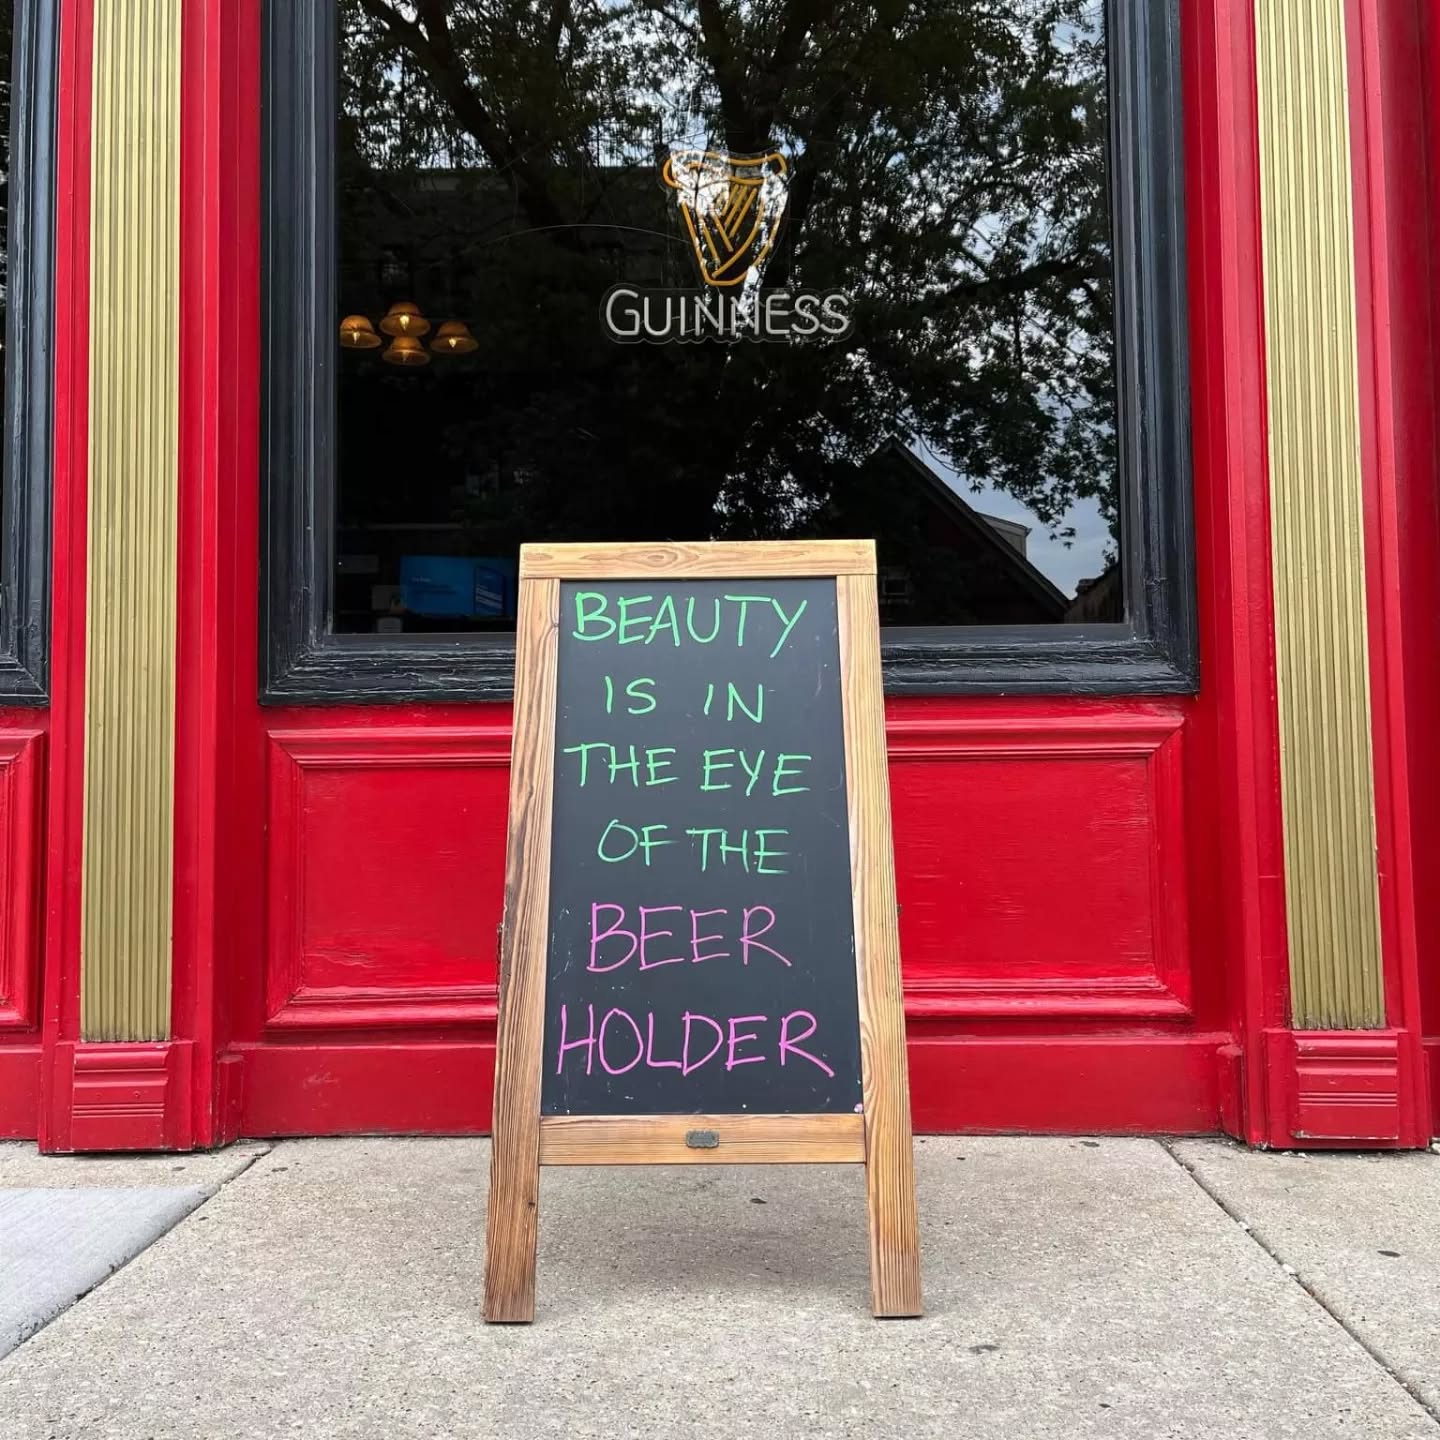 GUINNESS
BEAUTY
IS IN
THE EYE
OF THE
BEER
HOLDER